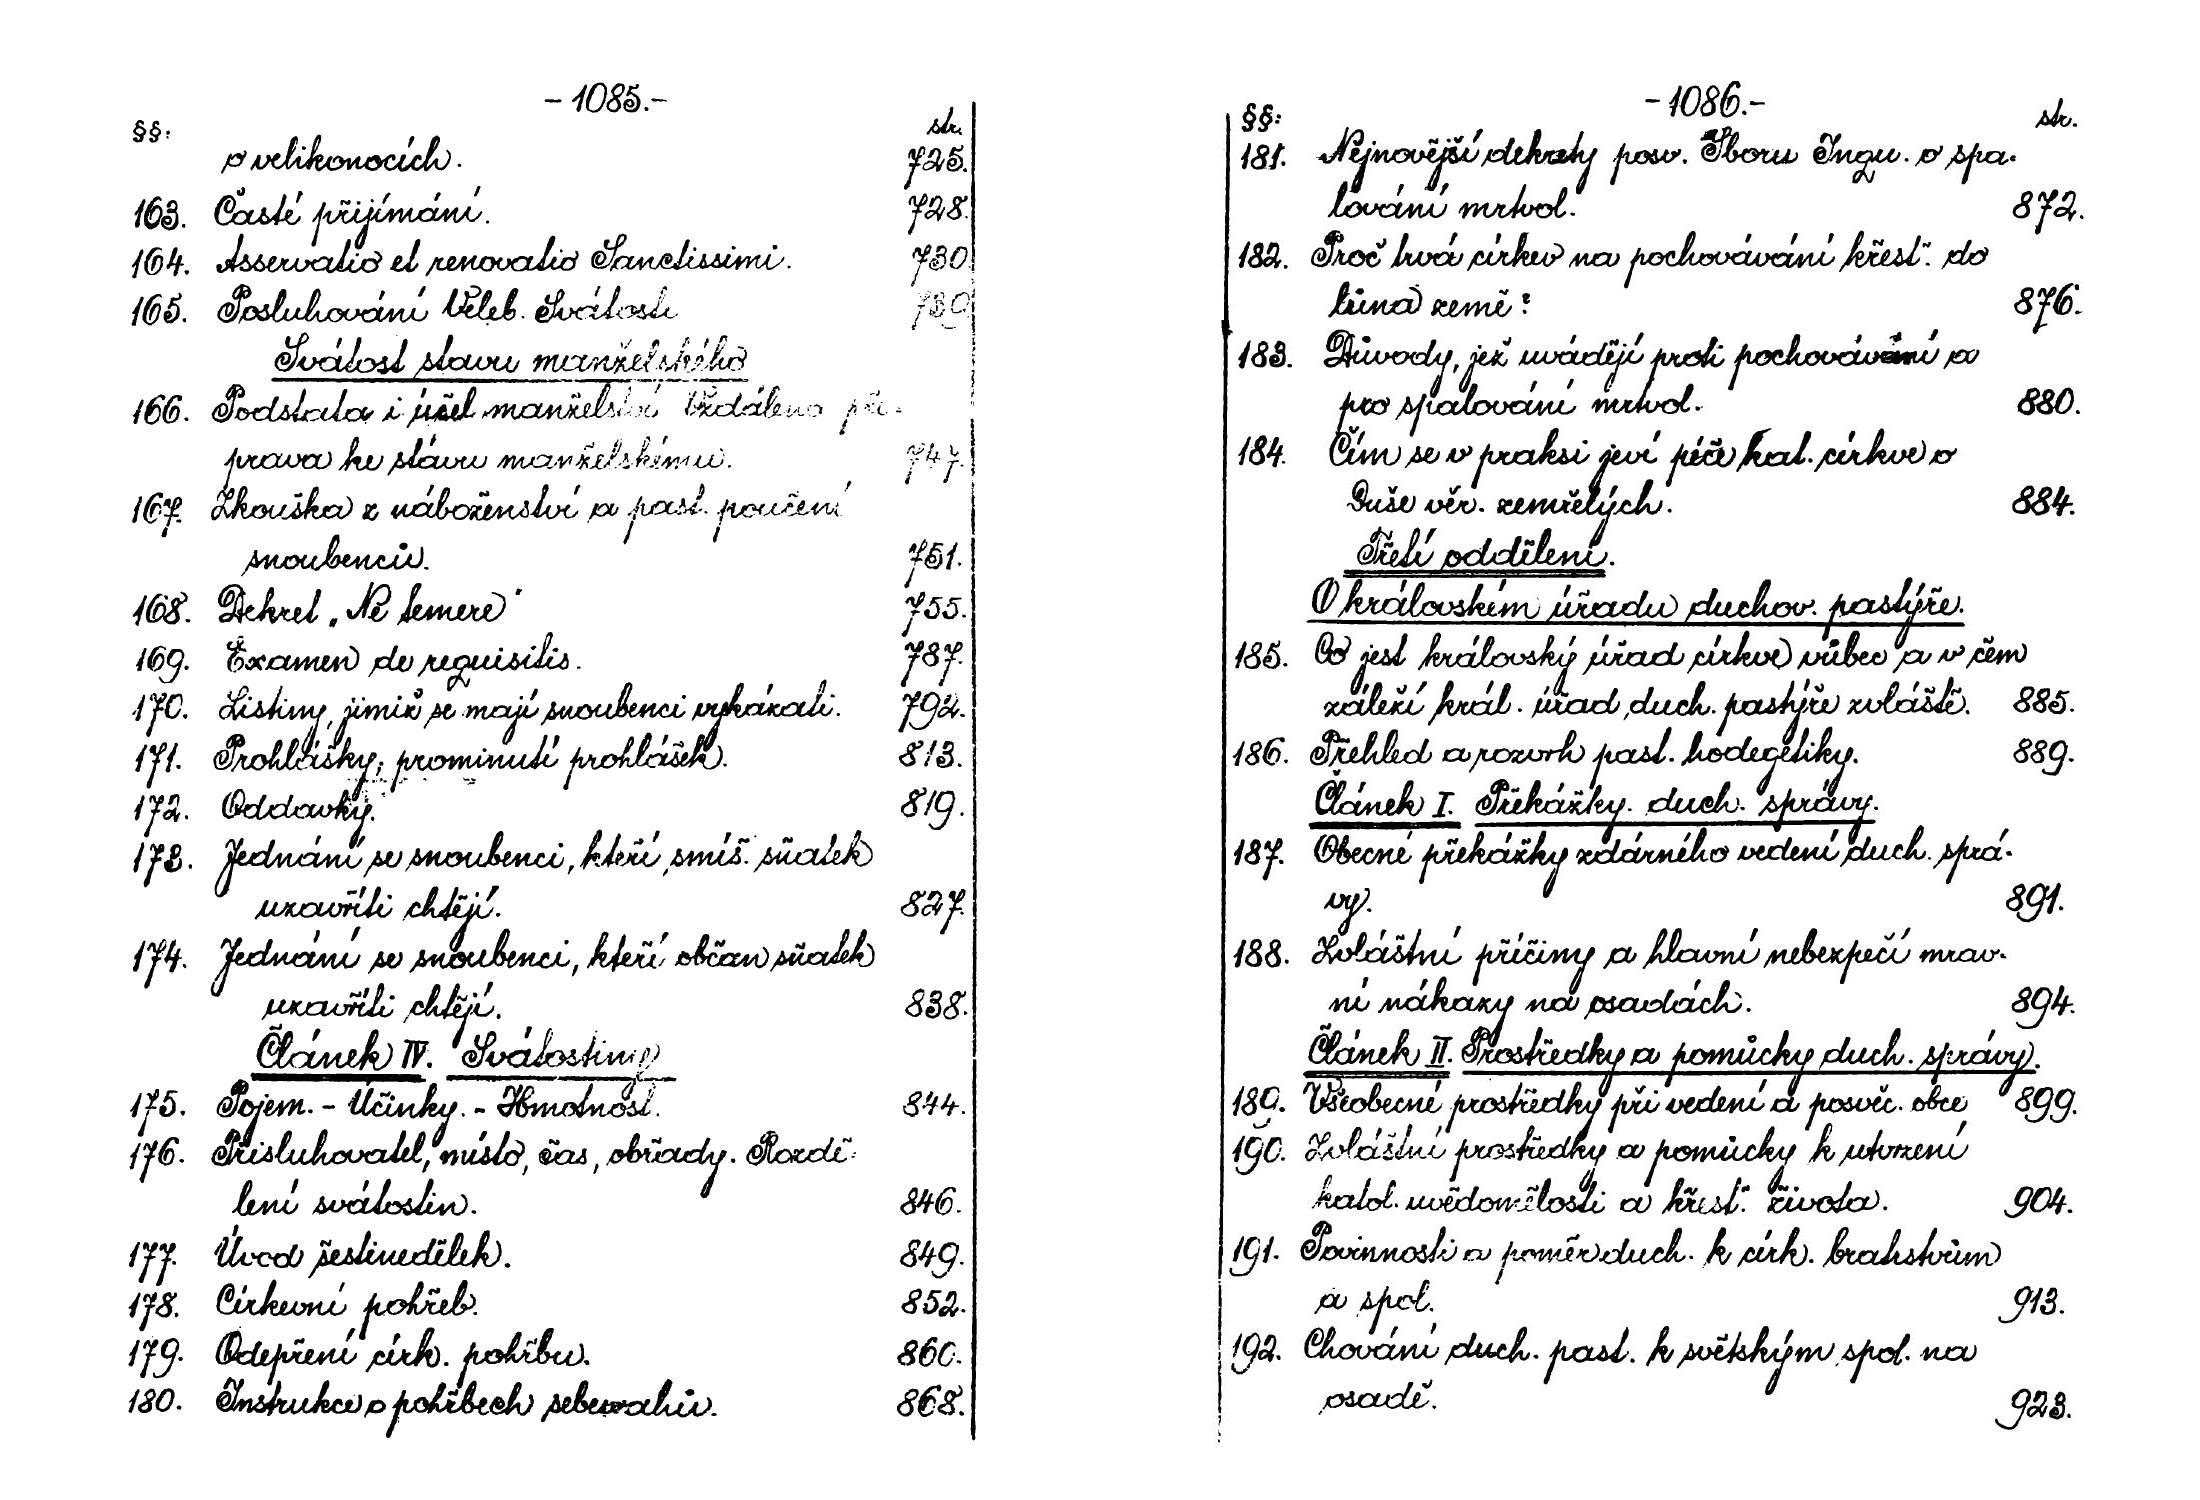 - 1085.-
§§: str.
o velikonocích. 725.
163. Časté přijímání. 728.
164. Asservatio et renovatio Sanctissimi. 730
165. Posluhování Veleb. Svátosti 739
Svátost stavu manželského
166. Podstata i účel manželství Vzdálena pří-
prava ke stavu manželskému. 747.
167. Zkouška z náboženství a past. poučení
snoubenců. 751.
168. Dekret „Ne temere" 755.
169. Examen de requisitis. 787.
170. Listiny, jimiž se mají snoubenci vykázati. 792.
171. Prohlášky; prominutí prohlášek. 813.
172. Oddavky. 819.
173. Jednání se snoubenci, kteří smíš. sňatek
uzavříti chtějí. 827.
174. Jednání se snoubenci, kteří občan sňatek
uzavříti chtějí. 838.
Článek IV. Svátostiny
175. Pojem. - Účinky. - Hmotnost. 844.
176. Přisluhovatel, místo, čas, obřady. Rozdě-
lení svátostin. 846.
177. Úvod šestinedělek. 849.
178. Církevní pohřeb. 852.
179. Odepření círk. pohřbu. 860.
180. Instrukce o pohřbech sebevrahů. 868.
- 1086.-
§§: str.
181. Nejnovější dekrety posv. Sboru Inqu. o spa-
lování mrtvol. 872.
182. Proč trvá církev na pochovávání křesť. do
lůna země? 876.
183. Důvody, jež uvádějí proti pochovávání a
pro spalování mrtvol. 880.
184. Čím se v praksi jeví péče kat. církve o
Duše věr. zemřelých. 884.
Třetí oddělení.
O královském úřadu duchov. pastýře.
185. Co jest královský úřad církve vůbec a v čem
záleží král. úřad duch. pastýře zvláště. 885.
186. Přehled a rozvrh past. hodegetiky. 889.
Článek I. Překážky. duch. správy.
187. Obecné překážky zdárného vedení duch. sprá-
vy. 891.
188. Zvláštní příčiny a hlavní nebezpečí mrav-
ní nákazy na osadách. 894.
Článek II. Prostředky a pomůcky duch. správy.
189. Všeobecné prostředky při vedení a posvěc. obce 899.
190. Zvláštní prostředky a pomůcky k utvrzení
katol. uvědomělosti a křesť. života. 904.
191. Povinnosti a poměr duch. k círk. bratrstvům
a spol. 913.
192. Chování duch. past. k světským spol. na
osadě. 923.